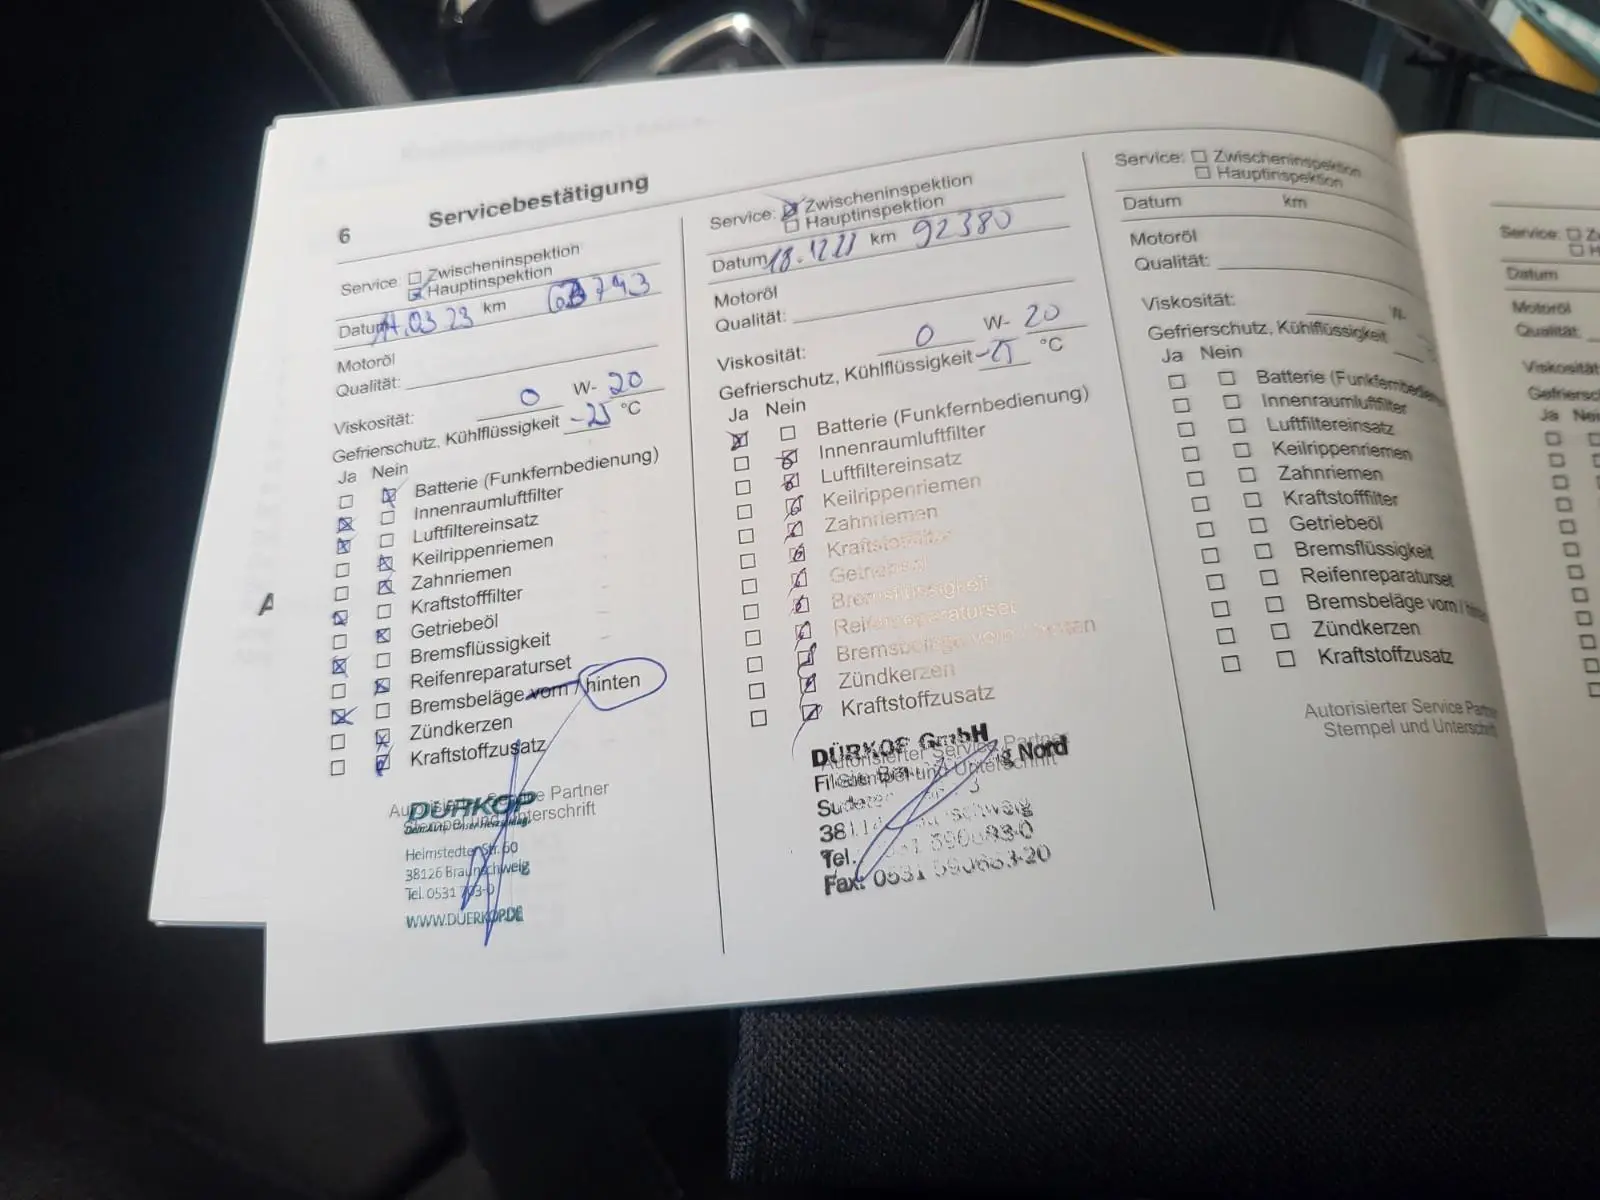 6 Servicebestätigung
Service: Zwischeninspektion
Hauptinspektion
Datum .03 23 km 743
Motoröl
Qualität:
Viskosität: 0 W- 20
Gefrierschutz, Kühlflüssigkeit -25 °C
Ja Nein
Batterie (Funkfernbedienung)
Innenraumluftfilter
Luftfiltereinsatz
Keilrippenriemen
Zahnriemen
Kraftstofffilter
Getriebeöl
Bremsflüssigkeit
Reifenreparaturset
Bremsbeläge vorn / hinten
Zündkerzen
Kraftstoffzusatz
Autorisierter Service Partner
Stempel und Unterschrift
DÜRKOP
Helmstedter Str. 60
38126 Braunschweig
Tel. 0531 703-0
WWW.DUERKOP.DE
Service: Zwischeninspektion
Hauptinspektion
Datum 18.12 km 92380
Motoröl
Qualität:
Viskosität: 0 W- 20
Gefrierschutz, Kühlflüssigkeit -25 °C
Ja Nein
Batterie (Funkfernbedienung)
Innenraumluftfilter
Luftfiltereinsatz
Keilrippenriemen
Zahnriemen
Kraftstofffilter
Getriebeöl
Bremsflüssigkeit
Reifenreparaturset
Bremsbeläge vorn / hinten
Zündkerzen
Kraftstoffzusatz
Autorisierter Service Partner
Stempel und Unterschrift
DÜRKOP GmbH
Nord
Tel.
Fax: 0531 590683-20
Service: Zwischeninspektion
Hauptinspektion
Datum km
Motoröl
Qualität:
Viskosität: W-
Gefrierschutz, Kühlflüssigkeit
Ja Nein
Batterie (Funkfernbedien
Innenraumluftfilter
Luftfiltereinsatz
Keilrippenriemen
Zahnriemen
Kraftstofffilter
Getriebeöl
Bremsflüssigkeit
Reifenreparaturset
Bremsbeläge vorn /
Zündkerzen
Kraftstoffzusatz
Autorisierter Service Partn
Stempel und Unterschrift
Service: Z
H
Datum
Motoröl
Qualität:
Viskosität
Gefriersc
Ja Nei
A